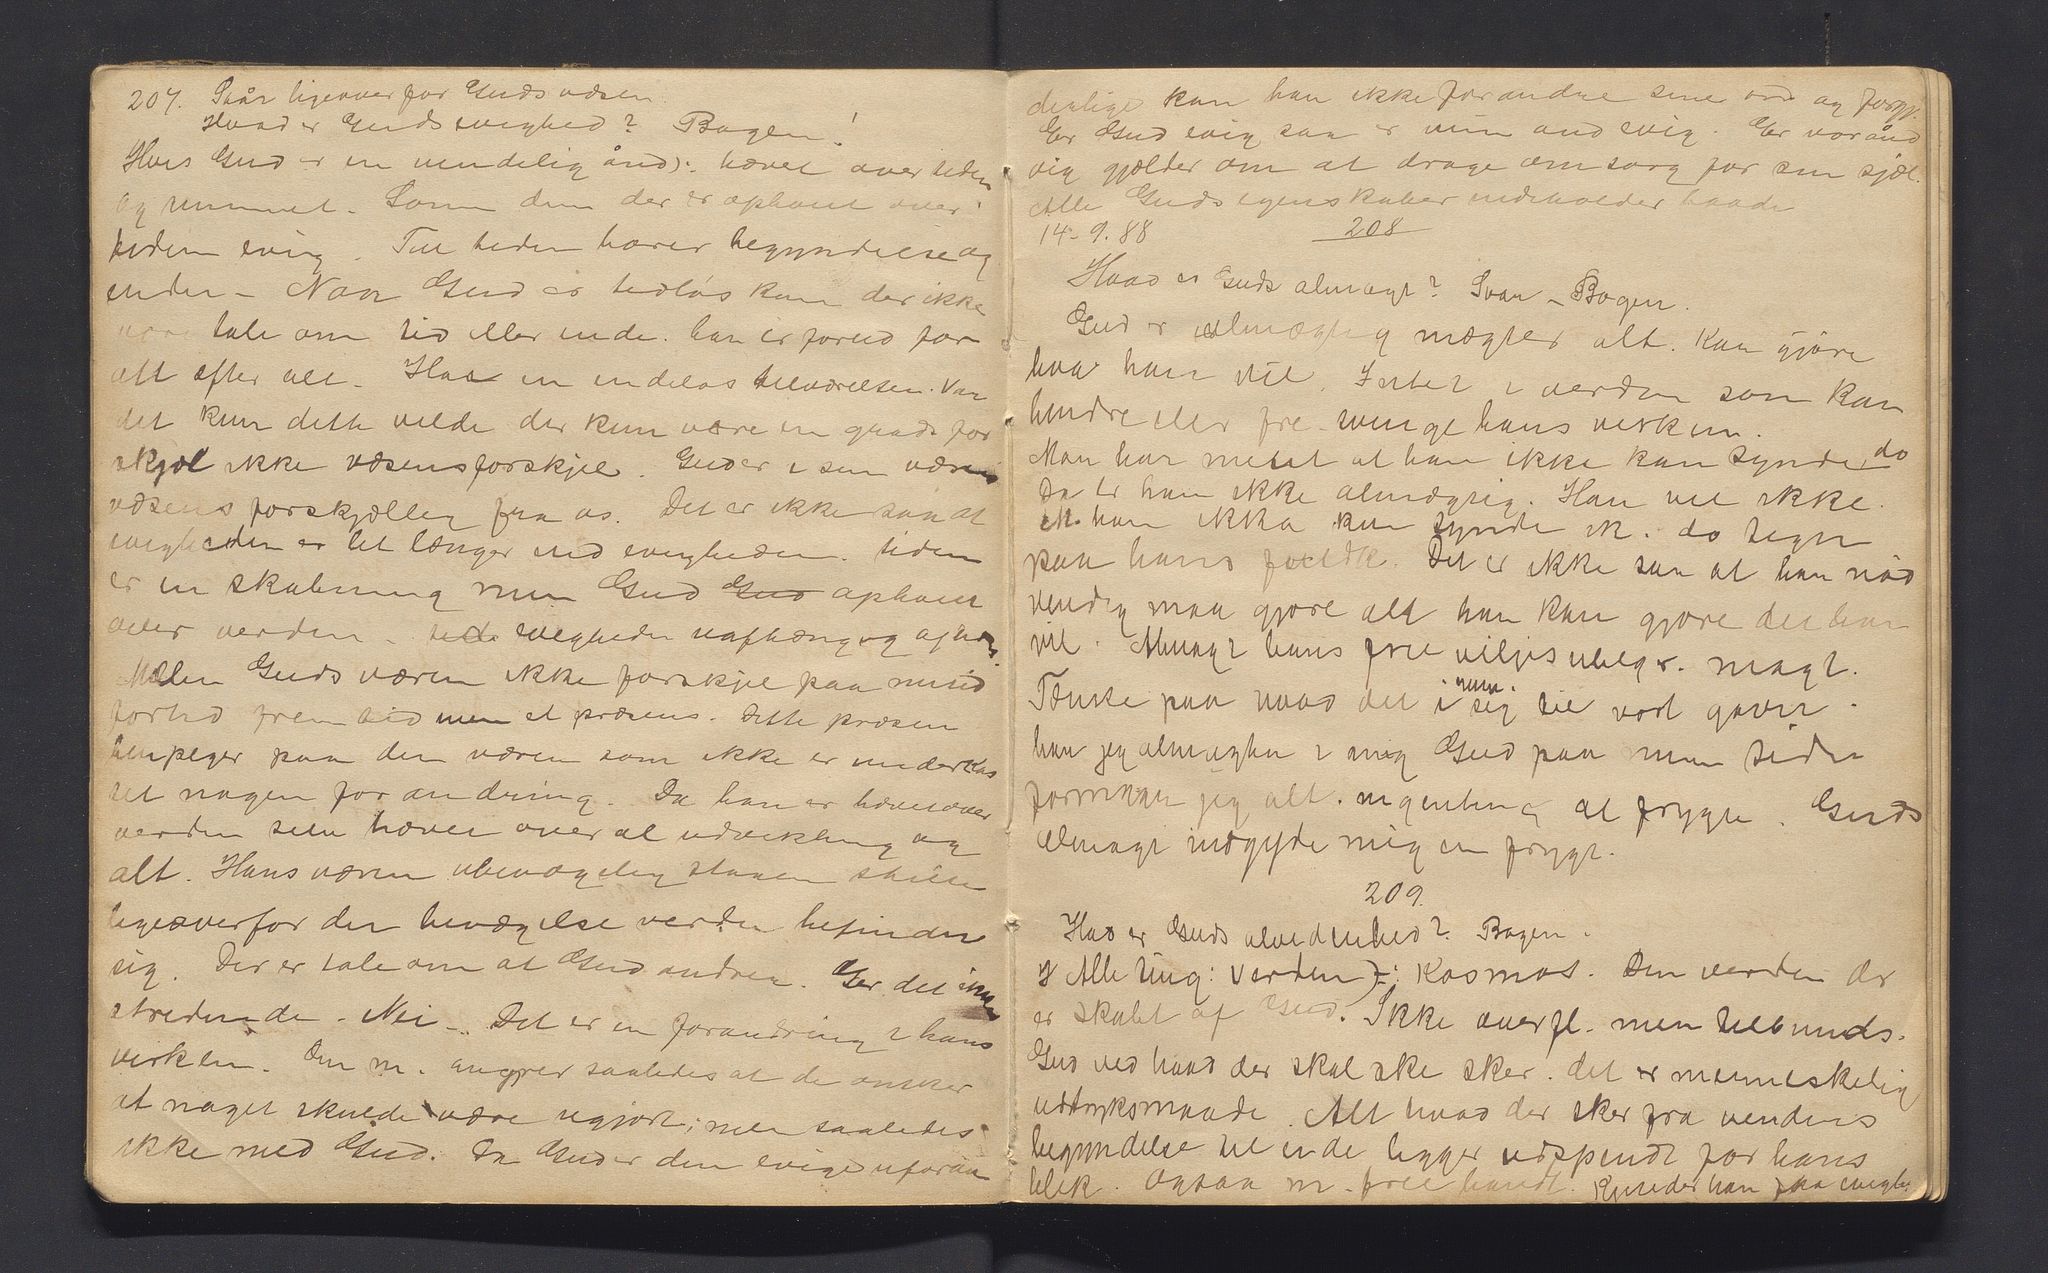 207. Står ligeoverfor Guds væsen.
Hvad er Guds evighed? Bogen!
Hvis Gud er en uendelig ånd ): hævet over tiden
og rummet. Som den der er ophøiet over
tiden evig. Til tiden hører begyndelse og
ender - Naar Gud er tidløs kan der ikke
være tale om tid eller ende. han er forud for
alt efter alt. Har en endeløs tilværelsen. Var
det kun dette vilde der kun være en grads for
skjæl ikke væsensforskjel. Gud er i sin væren
væsens forskjællig fra os. Det er ikke saa at
evigheden er lit længer end evigheden. tiden
er en skabning men Gud Gud ophøiet
over verden - tide evigheden uafhængig af
Mellen Guds væren ikke forskjel paa nutid
fortid fremtid men et præsens. Dette præsen
henpeger paa den væren som ikke er underkas
tet nogen forandring. Da han er hævet over
verden selv hævet over al udvikling og
alt. Hans væren ubevægelig staaen stille
ligeoverfor den bevægelse verden befinder
sig. Der er tale om at Gud andrer. Er det
stridende. Nei - Det er en forandring i hans
virken. Om m. angrer saaledes at de ønsker
at noget skulde være ugjort; men saaledes
ikke med Gud. Da Gud er den evige uforan
derlige kan han ikke forandre sine ord og
Er Gud evig saa er min aand evig. Er vor ånd
evig gjælder om at drage omsorg for sin sjæl.
Alle Guds egenskaber indeholder baade
14-9.88 208
Hvad er Guds almagt? Svar - Bogen.
Gud er almægtig mægter alt. Kan gjøre
hva han vil. Intet i verden som kan
hindre eller fre- tvinge hans virken.
Man har meint at han ikke kan synde, do
Da er han ikke almægtig. Han vil ikke.
at han ikke kan synde ik. do tegn
paa hans Det er ikke saa at han nød
vendig maa gjøre alt han kan gjøre det han
vil. Almagt hans frie viljes magt.
Tænke paa hvad det i sig til vort gavn.
har jeg almagten i mig Gud paa min side
formaar jeg alt. ingenting at frygte. Guds
almagt indgyde mig en frygt.
209.
Hvad er Guds alvidenhed? Bogen.
Alle ting: verden ): Kosmos. Den verden der
er skabt af Gud. Ikke overfl. men tilbunds.
Gud ved hvad der skal ske sker. det er menneskelig
udtryksmaade. Alt hvad der sker fra verdens
begyndelse til ende ligger udspendt for hans
blik. Ogsaa m. frie handl. Kjender han fra evigh.